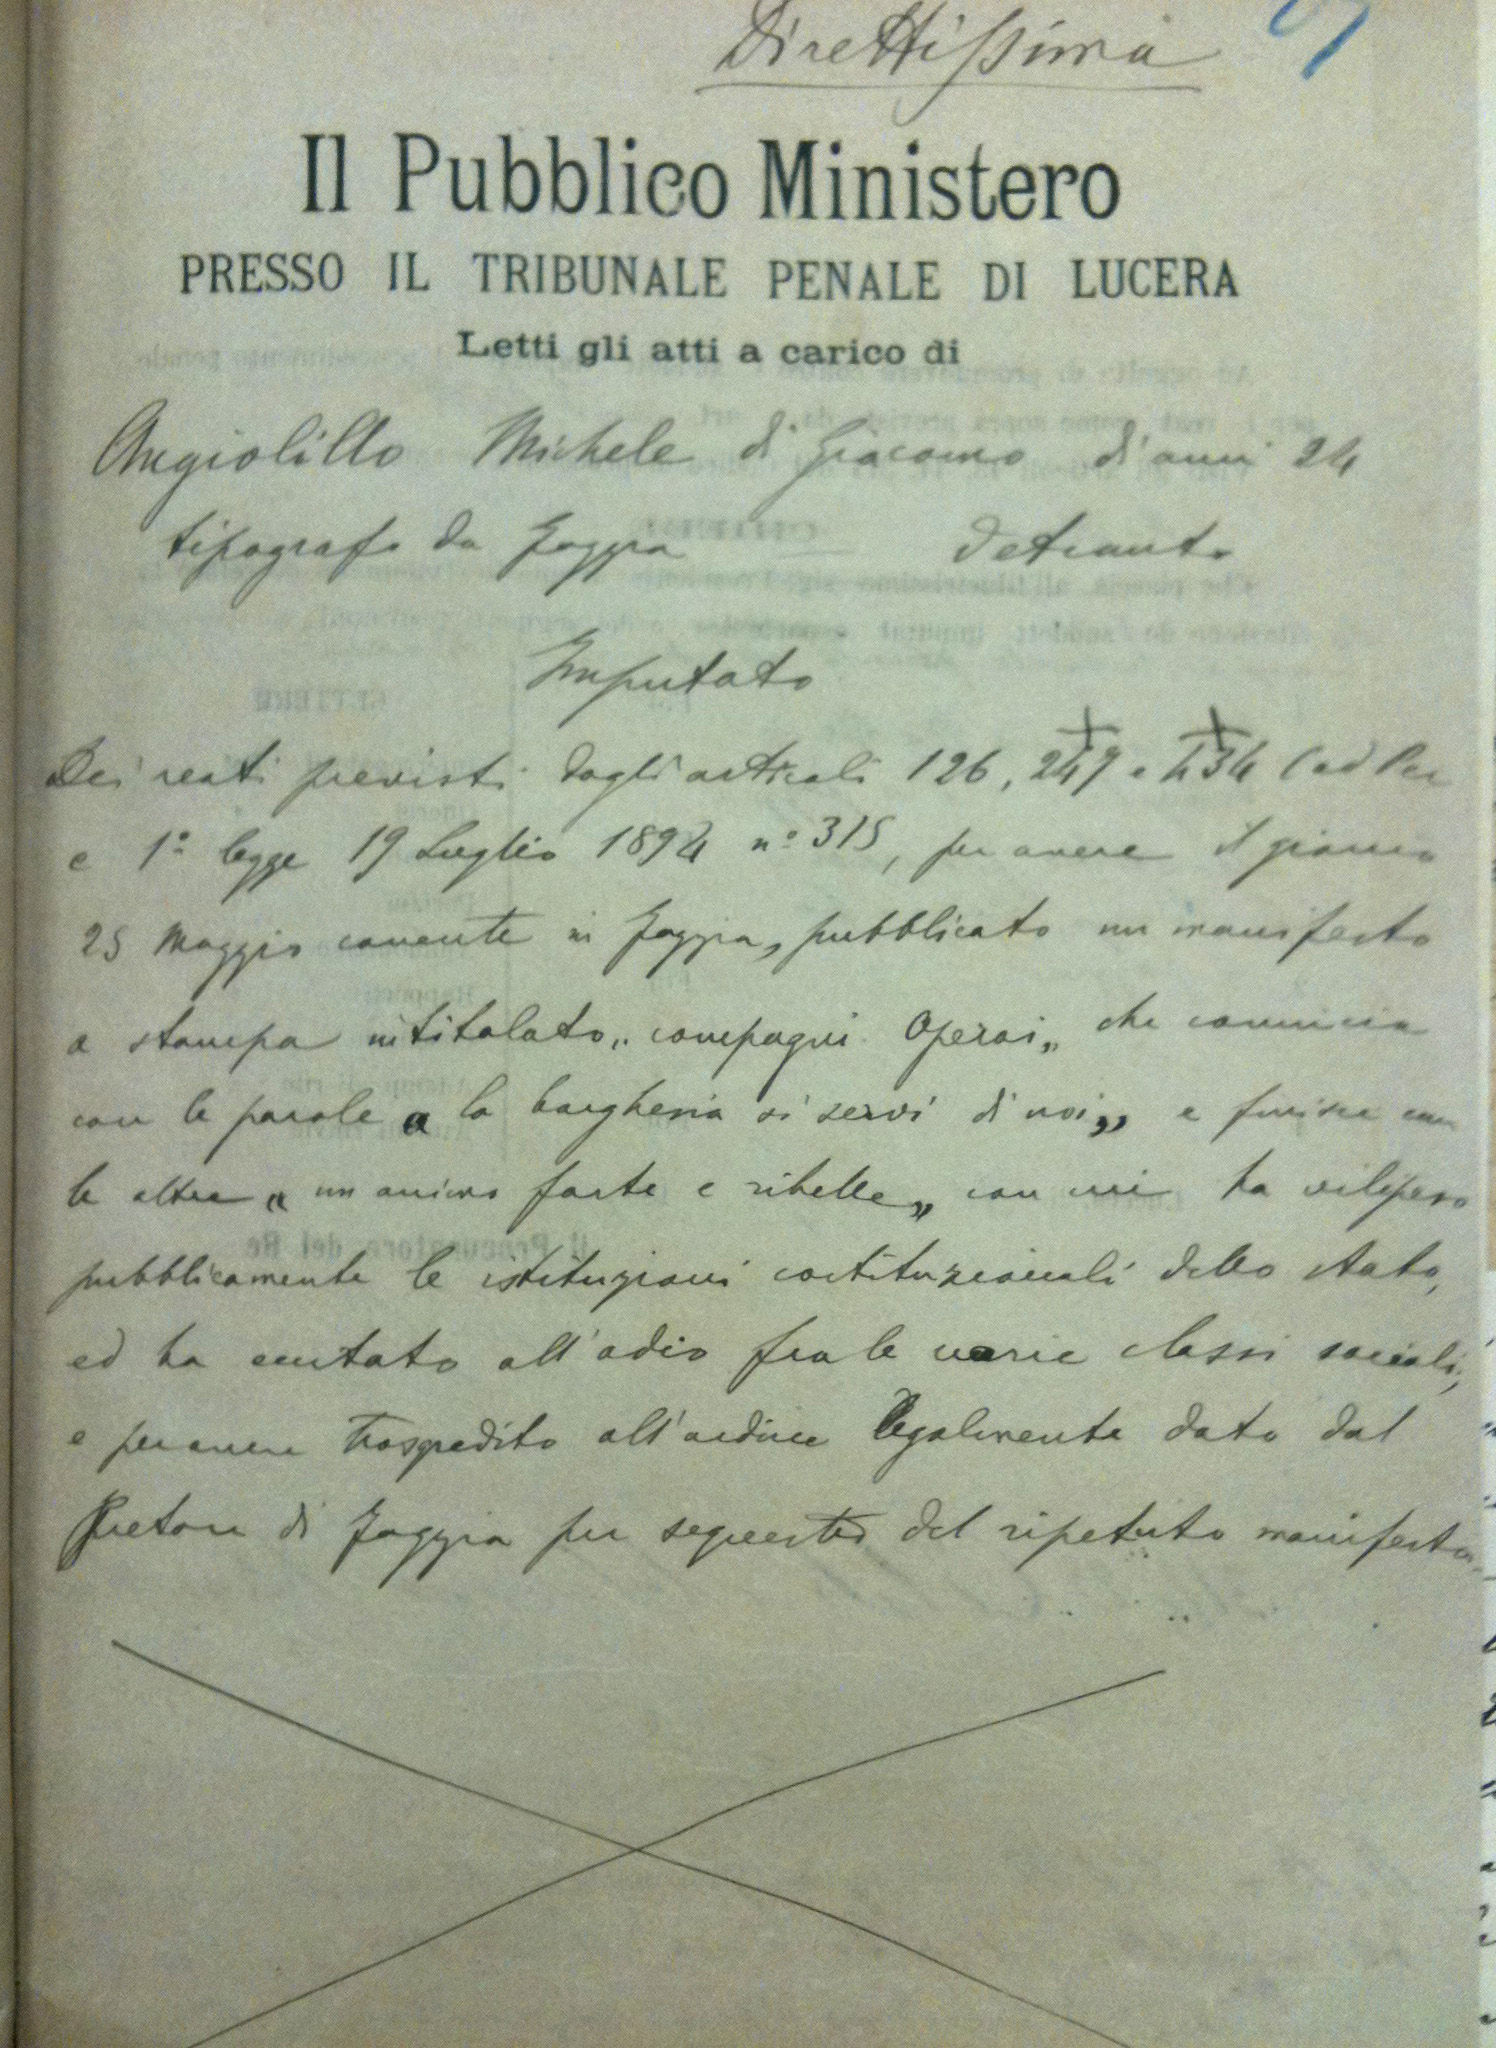 Direttissima
Il Pubblico Ministero
PRESSO IL TRIBUNALE PENALE DI LUCERA
Letti gli atti a carico di
Angiolillo Michele di Giacomo d'anni 24
tipografo da Foggia detenuto
Imputato
Dei reati previsti dagli articoli 126, 247 e 434 Cod Pen
e 1º legge 19 Luglio 1894 nº 315, per avere il giorno
25 Maggio corrente in Foggia, pubblicato un manifesto
a stampa intitolato „ compagni Operai „ che comincia
con le parole „ la borghesia si servì di noi „ e finisce con
le altre „ un animo forte e ribelle „ con cui ha vilipeso
pubblicamente le istituzioni costituzionali dello stato,
ed ha eccitato all'odio fra le varie classi sociali,
e per avere trasgredito all'ordine legalmente dato dal
Pretore di Foggia per sequestro del ripetuto manifesto.